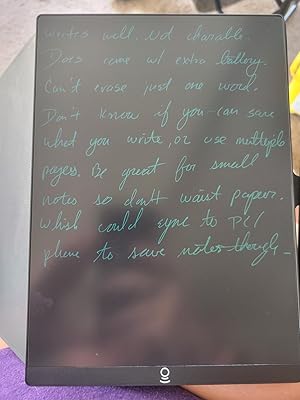 writes well. Not charable.
Does come w/ extra battery.
Can't erase just one word.
Don't know if you can save
what you write, or use multiple
pages. Be great for small
notes so don't waist paper.
Whish could sync to PC/
phone to save notes though_